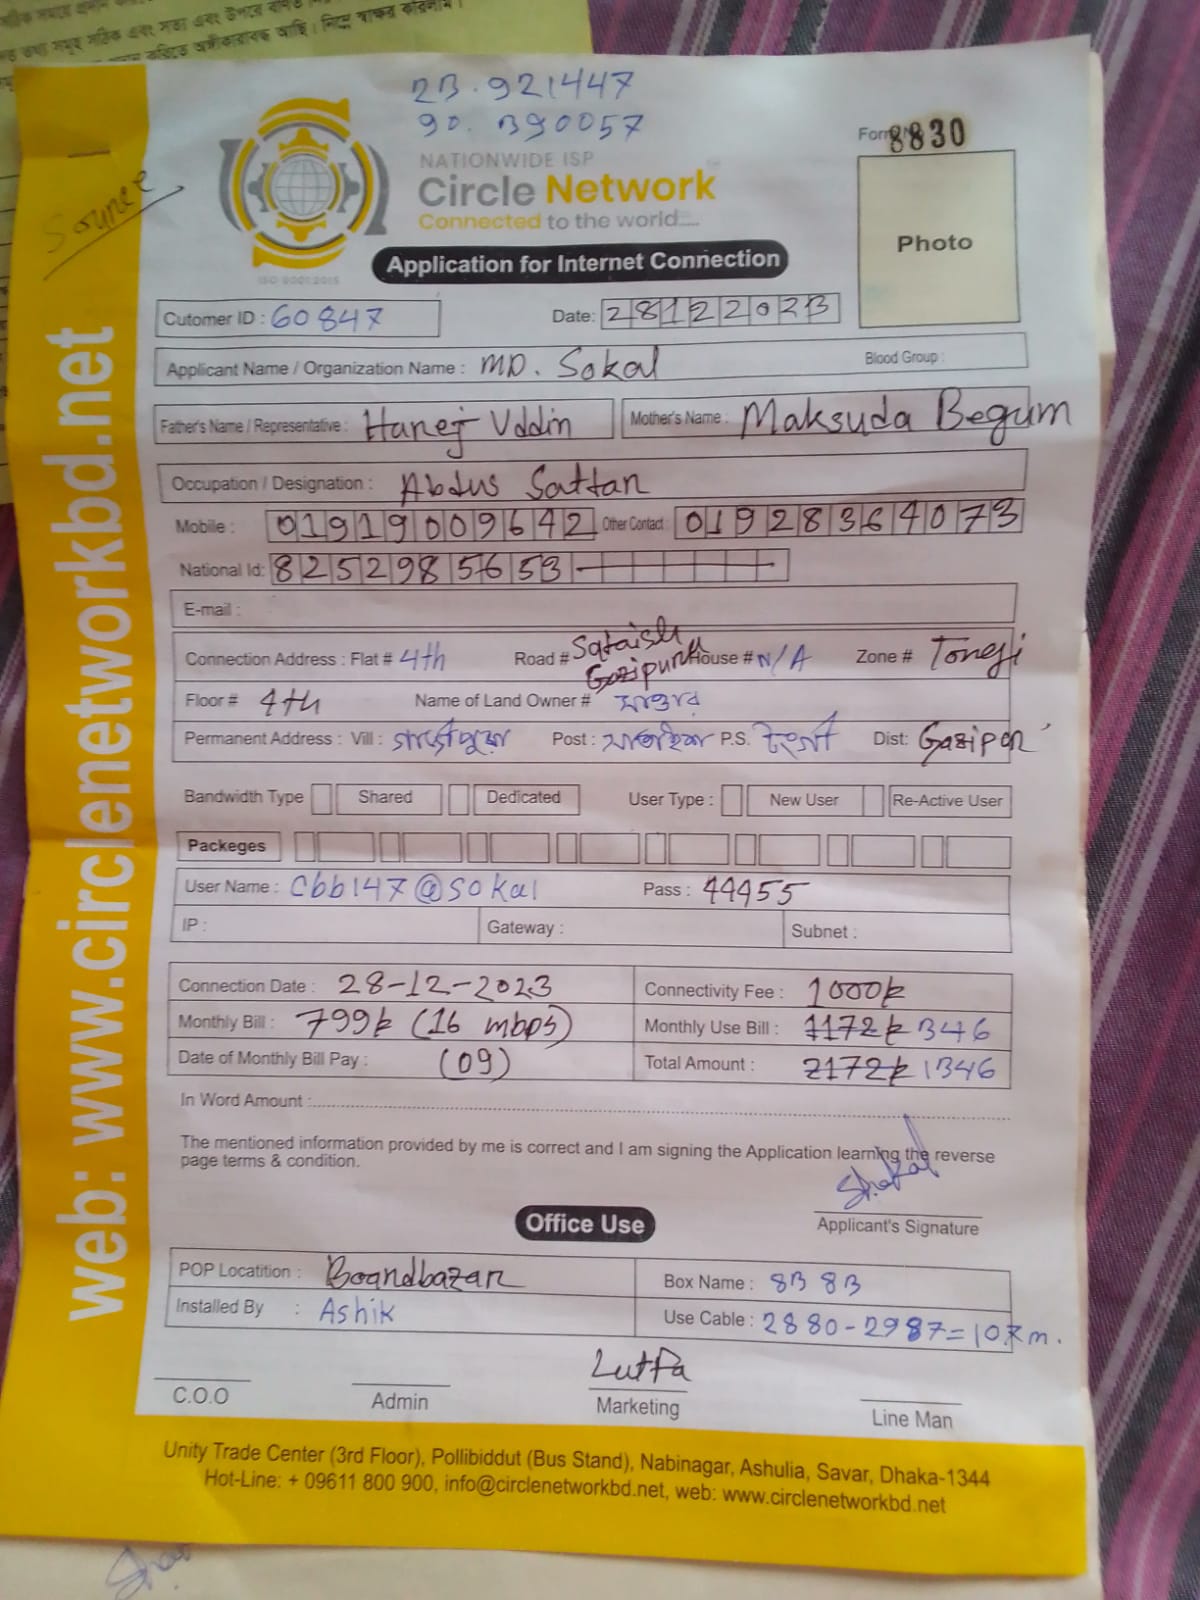 23.921447
90.390057
Form 8830
NATIONWIDE ISP
Circle Network
Connected to the world....
ISO 9001:2015
Source
Photo
Application for Internet Connection
Cutomer ID : 60847 Date: 28122023
Applicant Name / Organization Name : MD. Sokal Blood Group :
Father's Name / Representative : Hanej Uddin Mother's Name : Maksuda Begum
Occupation / Designation : Abdus Sattar
Mobile : 01919009642 Other Contact : 01928364073
National Id: 8252985653
E-mail :
Connection Address : Flat # 4th Road # Sataish Gazipura House # N/A Zone # Tongi
Floor # 4th Name of Land Owner # সাত্তার
Permanent Address : Vill : গাজীপুরা Post : সাতাইশ P.S. টংগী Dist: Gazipur
Bandwidth Type Shared Dedicated User Type : New User Re-Active User
Packeges
User Name : cbb147@sokal Pass : 44455
IP : Gateway : Subnet :
Connection Date : 28-12-2023 Connectivity Fee : 1000৳
Monthly Bill : 799৳ (16 mbps) Monthly Use Bill : 1172৳ 346
Date of Monthly Bill Pay : (09) Total Amount : 2172৳ 1346
In Word Amount :
The mentioned information provided by me is correct and I am signing the Application learning the reverse
page terms & condition.
Shakal
Applicant's Signature
Office Use
POP Locatition : Boardbazar Box Name : 83 83
Installed By : Ashik Use Cable : 2880-2987=107m.
Lutfa
C.O.O Admin Marketing Line Man
Unity Trade Center (3rd Floor), Pollibiddut (Bus Stand), Nabinagar, Ashulia, Savar, Dhaka-1344
Hot-Line: + 09611 800 900, info@circlenetworkbd.net, web: www.circlenetworkbd.net
web: www.circlenetworkbd.net